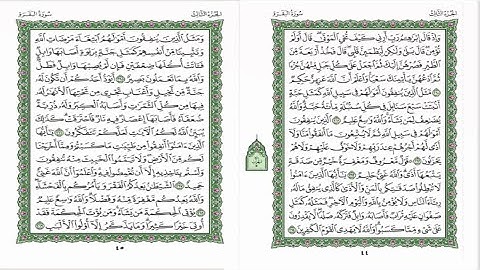 الجزء الثالث
سورة البقرة
وَإِذْ قَالَ إِبْرَٰهِـۧمُ رَبِّ أَرِنِى كَيْفَ تُحْىِ ٱلْمَوْتَىٰ قَالَ أَوَلَمْ
تُؤْمِن قَالَ بَلَىٰ وَلَٰكِن لِّيَطْمَئِنَّ قَلْبِى قَالَ فَخُذْ أَرْبَعَةً مِّنَ
ٱلطَّيْرِ فَصُرْهُنَّ إِلَيْكَ ثُمَّ ٱجْعَلْ عَلَىٰ كُلِّ جَبَلٍ مِّنْهُنَّ جُزْءًا
ثُمَّ ٱدْعُهُنَّ يَأْتِينَكَ سَعْيًا وَٱعْلَمْ أَنَّ ٱللَّهَ عَزِيزٌ حَكِيمٌ
مَّثَلُ ٱلَّذِينَ يُنفِقُونَ أَمْوَٰلَهُمْ فِى سَبِيلِ ٱللَّهِ كَمَثَلِ حَبَّةٍ
أَنۢبَتَتْ سَبْعَ سَنَابِلَ فِى كُلِّ سُنۢبُلَةٍ مِّا۟ئَةُ حَبَّةٍ وَٱللَّهُ
يُضَٰعِفُ لِمَن يَشَآءُ وَٱللَّهُ وَٰسِعٌ عَلِيمٌ ٱلَّذِينَ يُنفِقُونَ
أَمْوَٰلَهُمْ فِى سَبِيلِ ٱللَّهِ ثُمَّ لَا يُتْبِعُونَ مَآ أَنفَقُوا۟ مَنًّا وَلَآ
أَذًى لَّهُمْ أَجْرُهُمْ عِندَ رَبِّهِمْ وَلَا خَوْفٌ عَلَيْهِمْ وَلَا هُمْ
يَحْزَنُونَ قَوْلٌ مَّعْرُوفٌ وَمَغْفِرَةٌ خَيْرٌ مِّن صَدَقَةٍ
يَتْبَعُهَآ أَذًى وَٱللَّهُ غَنِىٌّ حَلِيمٌ يَٰٓأَيُّهَا ٱلَّذِينَ ءَامَنُوا۟
لَا تُبْطِلُوا۟ صَدَقَٰتِكُم بِٱلْمَنِّ وَٱلْأَذَىٰ كَٱلَّذِى يُنفِقُ مَالَهُۥ
رِئَآءَ ٱلنَّاسِ وَلَا يُؤْمِنُ بِٱللَّهِ وَٱلْيَوْمِ ٱلْءَاخِرِ فَمَثَلُهُۥ كَمَثَلِ
صَفْوَانٍ عَلَيْهِ تُرَابٌ فَأَصَابَهُۥ وَابِلٌ فَتَرَكَهُۥ صَلْدًا لَّا يَقْدِرُونَ
عَلَىٰ شَىْءٍ مِّمَّا كَسَبُوا۟ وَٱللَّهُ لَا يَهْدِى ٱلْقَوْمَ ٱلْكَٰفِرِينَ
٤٤
الجزء الثالث
سورة البقرة
وَمَثَلُ ٱلَّذِينَ يُنفِقُونَ أَمْوَٰلَهُمُ ٱبْتِغَآءَ مَرْضَاتِ ٱللَّهِ
وَتَثْبِيتًا مِّنْ أَنفُسِهِمْ كَمَثَلِ جَنَّةٍۭ بِرَبْوَةٍ أَصَابَهَا وَابِلٌ
فَـَٔاتَتْ أُكُلَهَا ضِعْفَيْنِ فَإِن لَّمْ يُصِبْهَا وَابِلٌ فَطَلٌّ
وَٱللَّهُ بِمَا تَعْمَلُونَ بَصِيرٌ أَيَوَدُّ أَحَدُكُمْ أَن تَكُونَ لَهُۥ
جَنَّةٌ مِّن نَّخِيلٍ وَأَعْنَابٍ تَجْرِى مِن تَحْتِهَا ٱلْأَنْهَٰرُ لَهُۥ
فِيهَا مِن كُلِّ ٱلثَّمَرَٰتِ وَأَصَابَهُ ٱلْكِبَرُ وَلَهُۥ ذُرِّيَّةٌ
ضُعَفَآءُ فَأَصَابَهَآ إِعْصَارٌ فِيهِ نَارٌ فَٱحْتَرَقَتْ كَذَٰلِكَ
يُبَيِّنُ ٱللَّهُ لَكُمُ ٱلْءَايَٰتِ لَعَلَّكُمْ تَتَفَكَّرُونَ
يَٰٓأَيُّهَا ٱلَّذِينَ ءَامَنُوٓا۟ أَنفِقُوا۟ مِن طَيِّبَٰتِ مَا كَسَبْتُمْ وَمِمَّآ أَخْرَجْنَا
لَكُم مِّنَ ٱلْأَرْضِ وَلَا تَيَمَّمُوا۟ ٱلْخَبِيثَ مِنْهُ تُنفِقُونَ
وَلَسْتُم بِـَٔاخِذِيهِ إِلَّآ أَن تُغْمِضُوا۟ فِيهِ وَٱعْلَمُوٓا۟ أَنَّ ٱللَّهَ غَنِىٌّ
حَمِيدٌ ٱلشَّيْطَٰنُ يَعِدُكُمُ ٱلْفَقْرَ وَيَأْمُرُكُم بِٱلْفَحْشَآءِ
وَٱللَّهُ يَعِدُكُم مَّغْفِرَةً مِّنْهُ وَفَضْلًا وَٱللَّهُ وَٰسِعٌ عَلِيمٌ
يُؤْتِى ٱلْحِكْمَةَ مَن يَشَآءُ وَمَن يُؤْتَ ٱلْحِكْمَةَ فَقَدْ
أُوتِىَ خَيْرًا كَثِيرًا وَمَا يَذَّكَّرُ إِلَّآ أُو۟لُوا۟ ٱلْأَلْبَٰبِ
٤٥